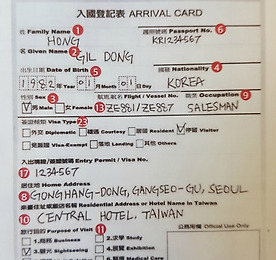 入國登記表 ARRIVAL CARD
姓 Family Name 1 護照號碼 Passport No. 6
HONG KR1234567
名 Given Name 2
GIL DONG
出生日期 Date of Birth 5 國籍 Nationality 4
1982年 01月 01日 KOREA
性別 Sex 3 航班 Flight / Vessel No. 職業 Occupation 9
男 Male 女 Female 13 ZE881/ZE887 SALESMAN
簽證種類 Visa Type 23
外交 Diplomatic 禮遇 Courtesy 居留 Resident 停留 Visitor
免簽證 Visa-Exempt 落地 Landing 其他 Others
入出境證/簽證號碼 Entry Permit / Visa No.
17 1234567
居住地 Home Address
8 GONGHANG-DONG, GANGSEO-GU, SEOUL
Residential Address or Hotel Name in Taiwan
10 CENTRAL HOTEL, TAIWAN
旅行目的 Purpose of Visit 11 公務用欄 Official Use Only
1.商務 Business 2.求學 Study
3.觀光 Sightseeing 4.展覽 Exhibition